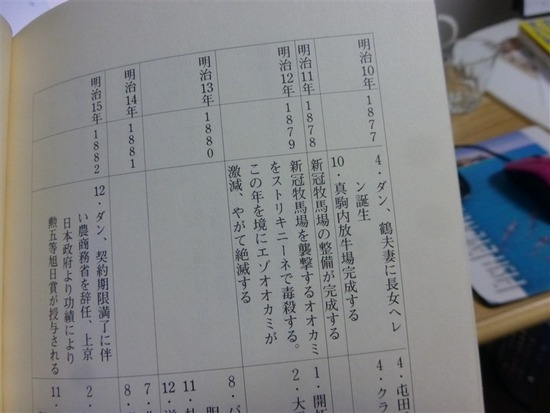 明治10年
1877
4・ダン、鶴夫妻に長女ヘレ
ン誕生
10・真駒内放牛場完成する
明治11年
1878
新冠牧馬場の整備が完成する
明治12年
1879
新冠牧馬場を襲撃するオオカミ
をストリキニーネで毒殺する。
この年を境にエゾオオカミが
激減、やがて絶滅する
明治13年
1880
明治14年
1881
明治15年
1882
12・ダン、契約期限満了に伴
い農商務省を辞任、上京
日本政府より功績により
勲五等旭日賞が授与される
4・屯田
4・クラ
1・開拓
2・大
8・
11・
12・
7・
8・
2・
11・